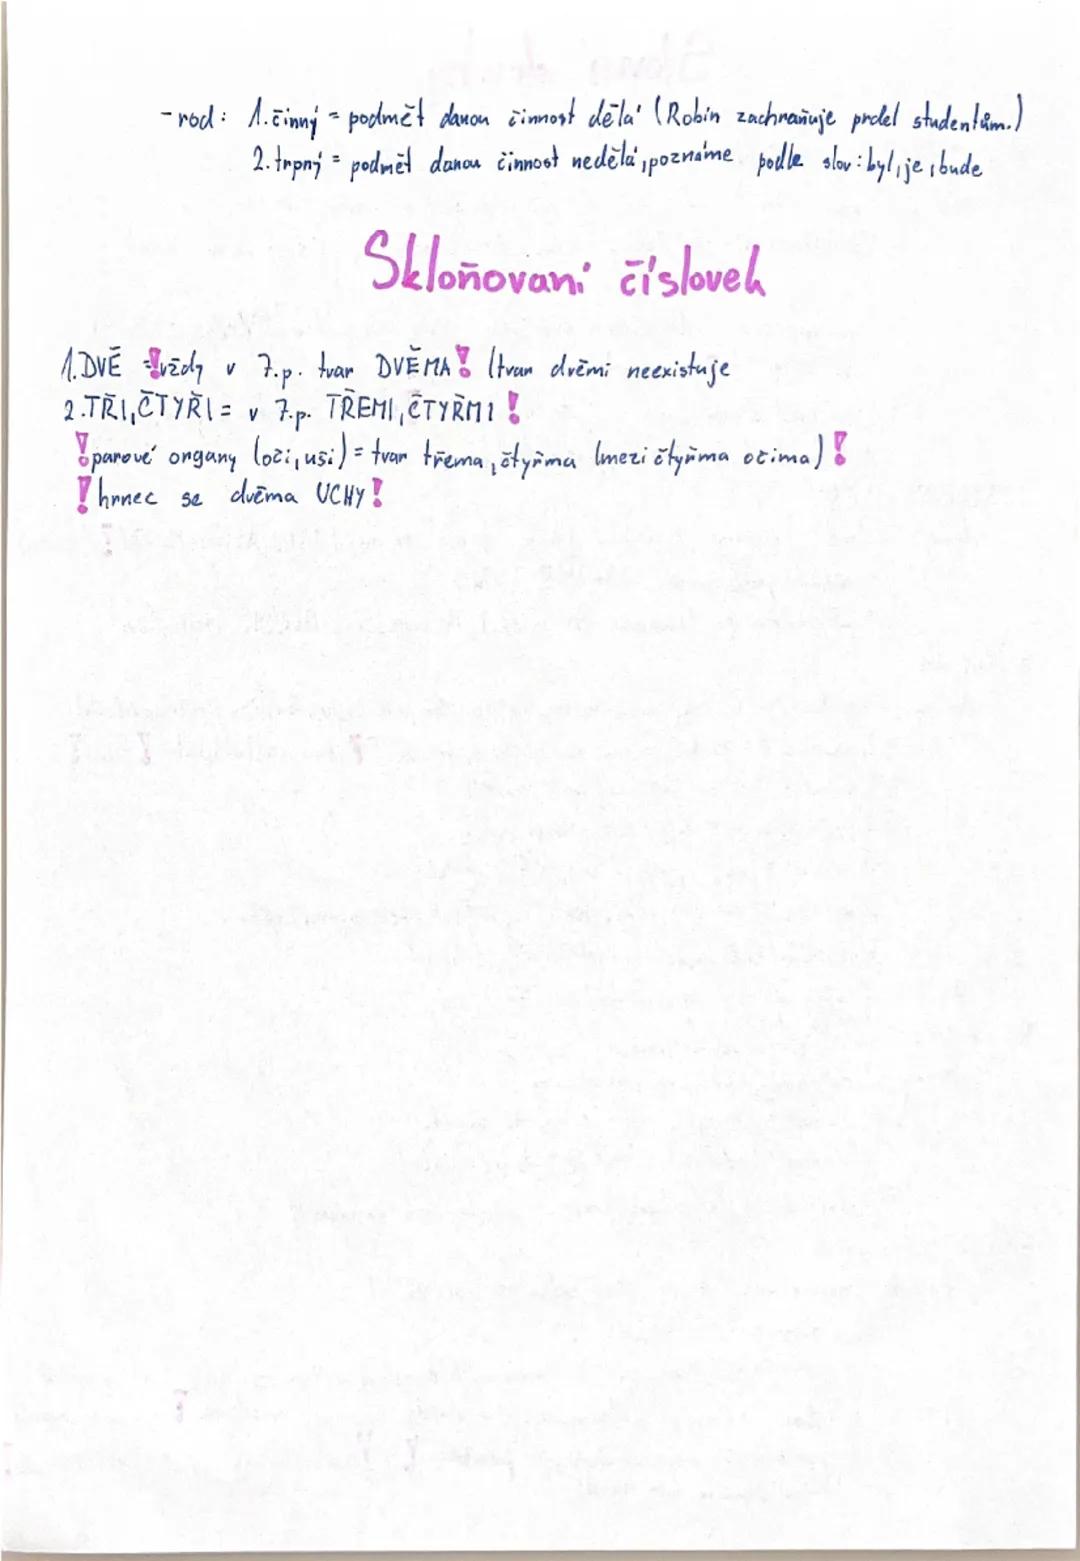 - rod: 1. činný = podmět danou činnost dělá (Robin zachraňuje prdel studentům.)
2. trpný = podmět danou činnost nedělá, poznáme podle slov: byl, je, bude
Skloňovaní číslovek
1. DVĚ = ! vždy v 7.p. tvar DVĚMA! (tvar dvěmi neexistuje
2. TŘI, ČTYŘI = v 7.p. TŘEMI, ČTYŘMI!
! parové organy (oči, uši) = tvar třema, čtyřma (mezi čtyřma očima)!
! hrnec se dvěma UCHY!